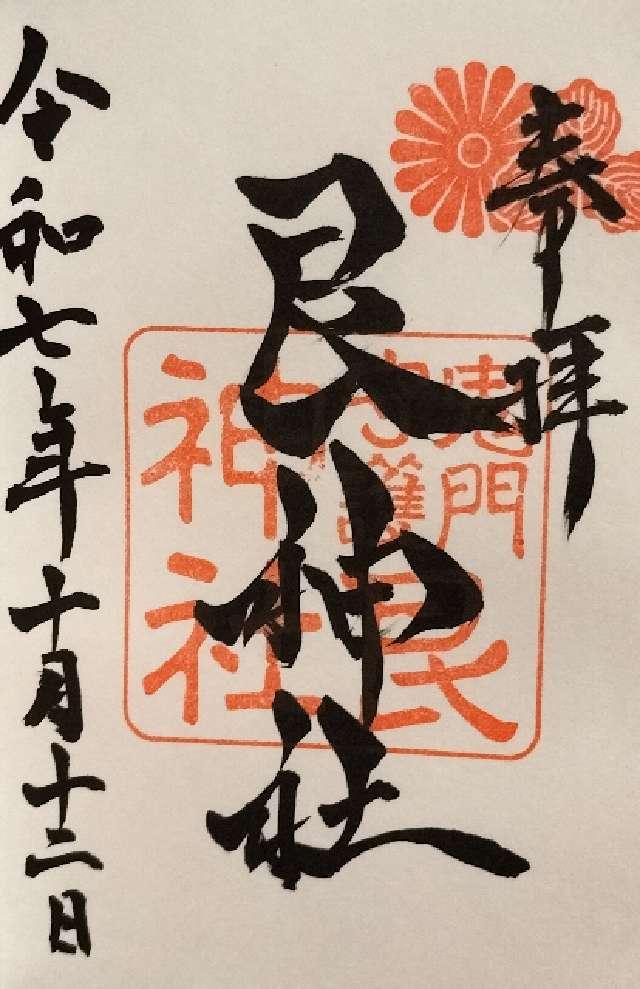 奉拝
艮神社
令和七年十月十二日
鬼門
守護
艮
神社